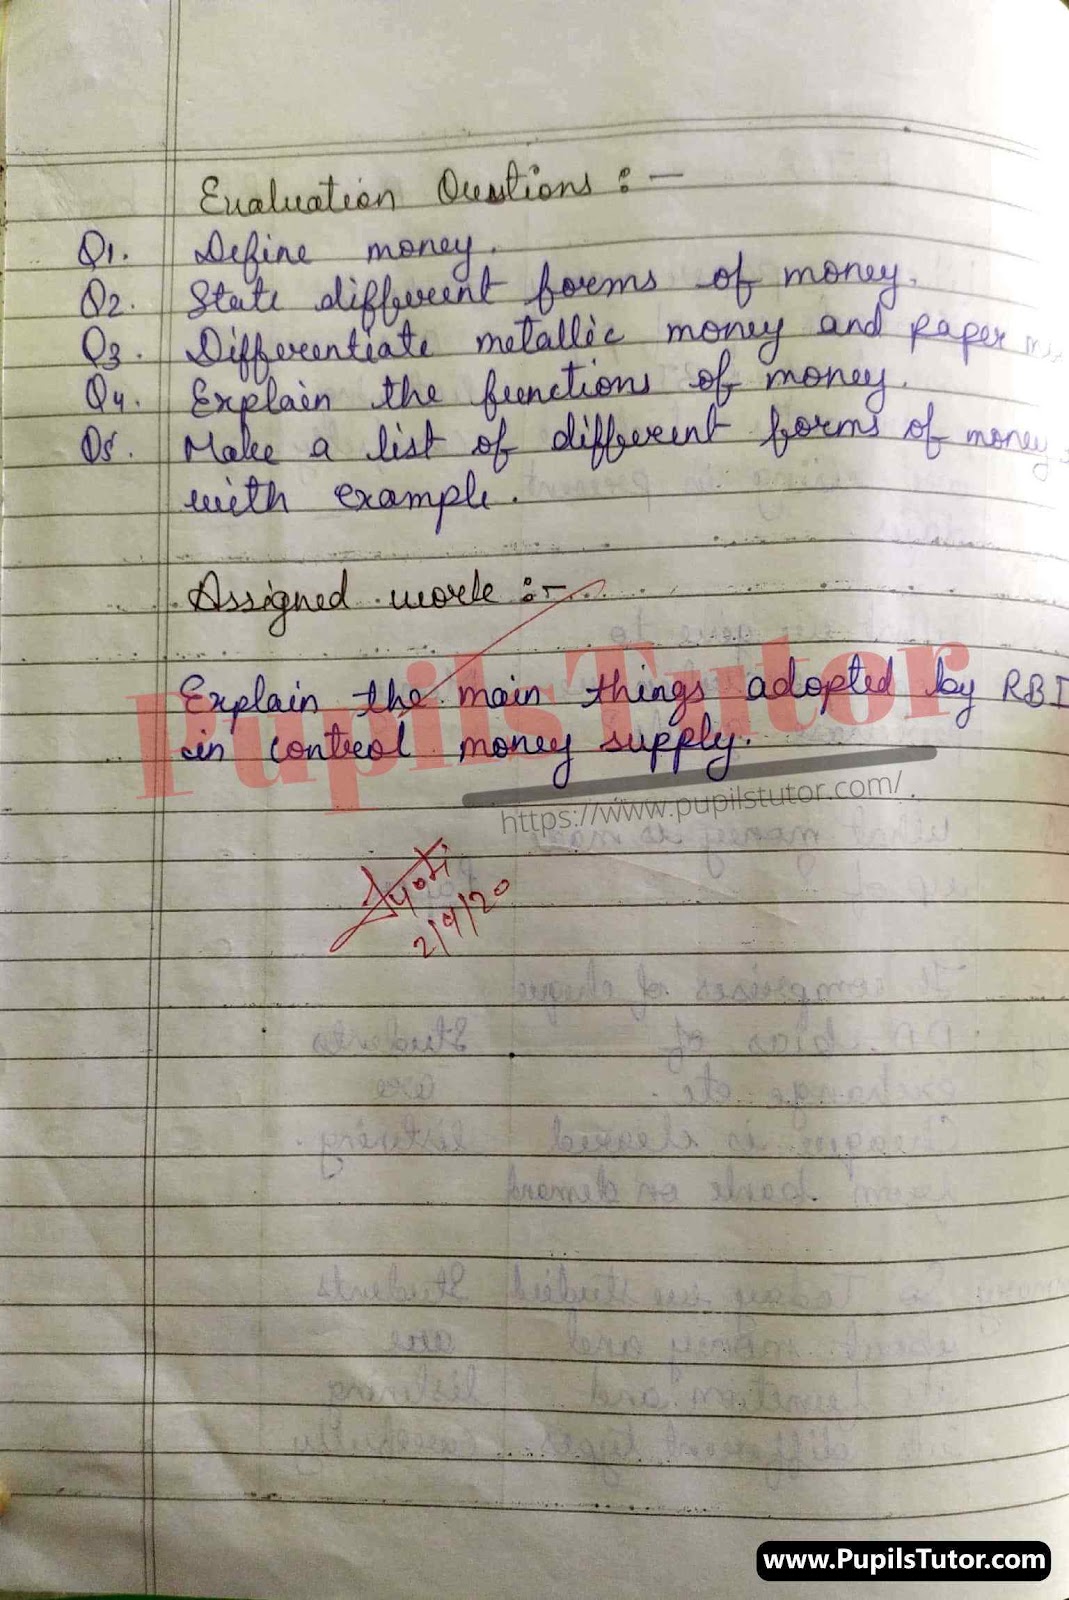 Evaluation Questions :-
Q1. Define money.
Q2. State different forms of money.
Q3. Differentiate metallic money and paper
Q4. Explain the functions of money.
Q5. Make a list of different forms of money
with example.
Assigned work :-
Explain the main things adopted by RBI
in control money supply.
PupilsTutor
https://www.pupilstutor.com/
Jyoti
2/9/20
www.PupilsTutor.com